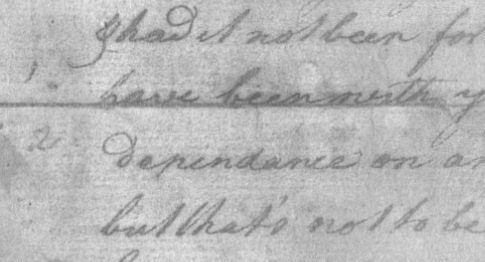 had it not been for
have been with y
2
dependance on an
but that's not to be